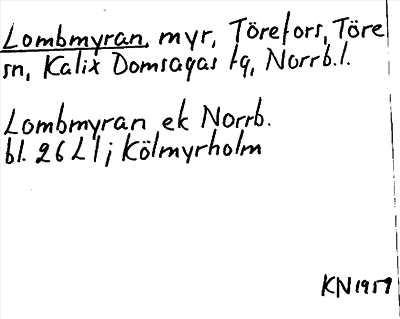 Lombmyran, myr, Törefors, Töre
sn, Kalix Domsagas tg, Norrb.l.
Lombmyran ek Norrb.
bl. 26 L I; Kölmyrholm
KN 1959